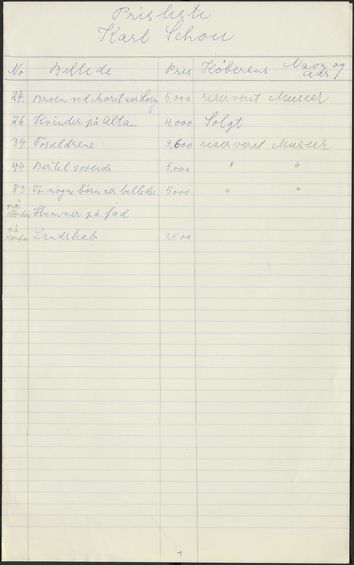 Prisliste
Karl Schou
No Billede Pris Köberens Navn og Adr
24. Broen ved 5,000 reserveret Museer
26 Kvinder på Altan 4,000 Solgt
34 Forældrene 3,600 reserveret Museer
44 Bertel sovende 5,000 " "
83 To nøgne børn ser billeder 5000 " "
på Hummer på fad
på Landskab 2500
1